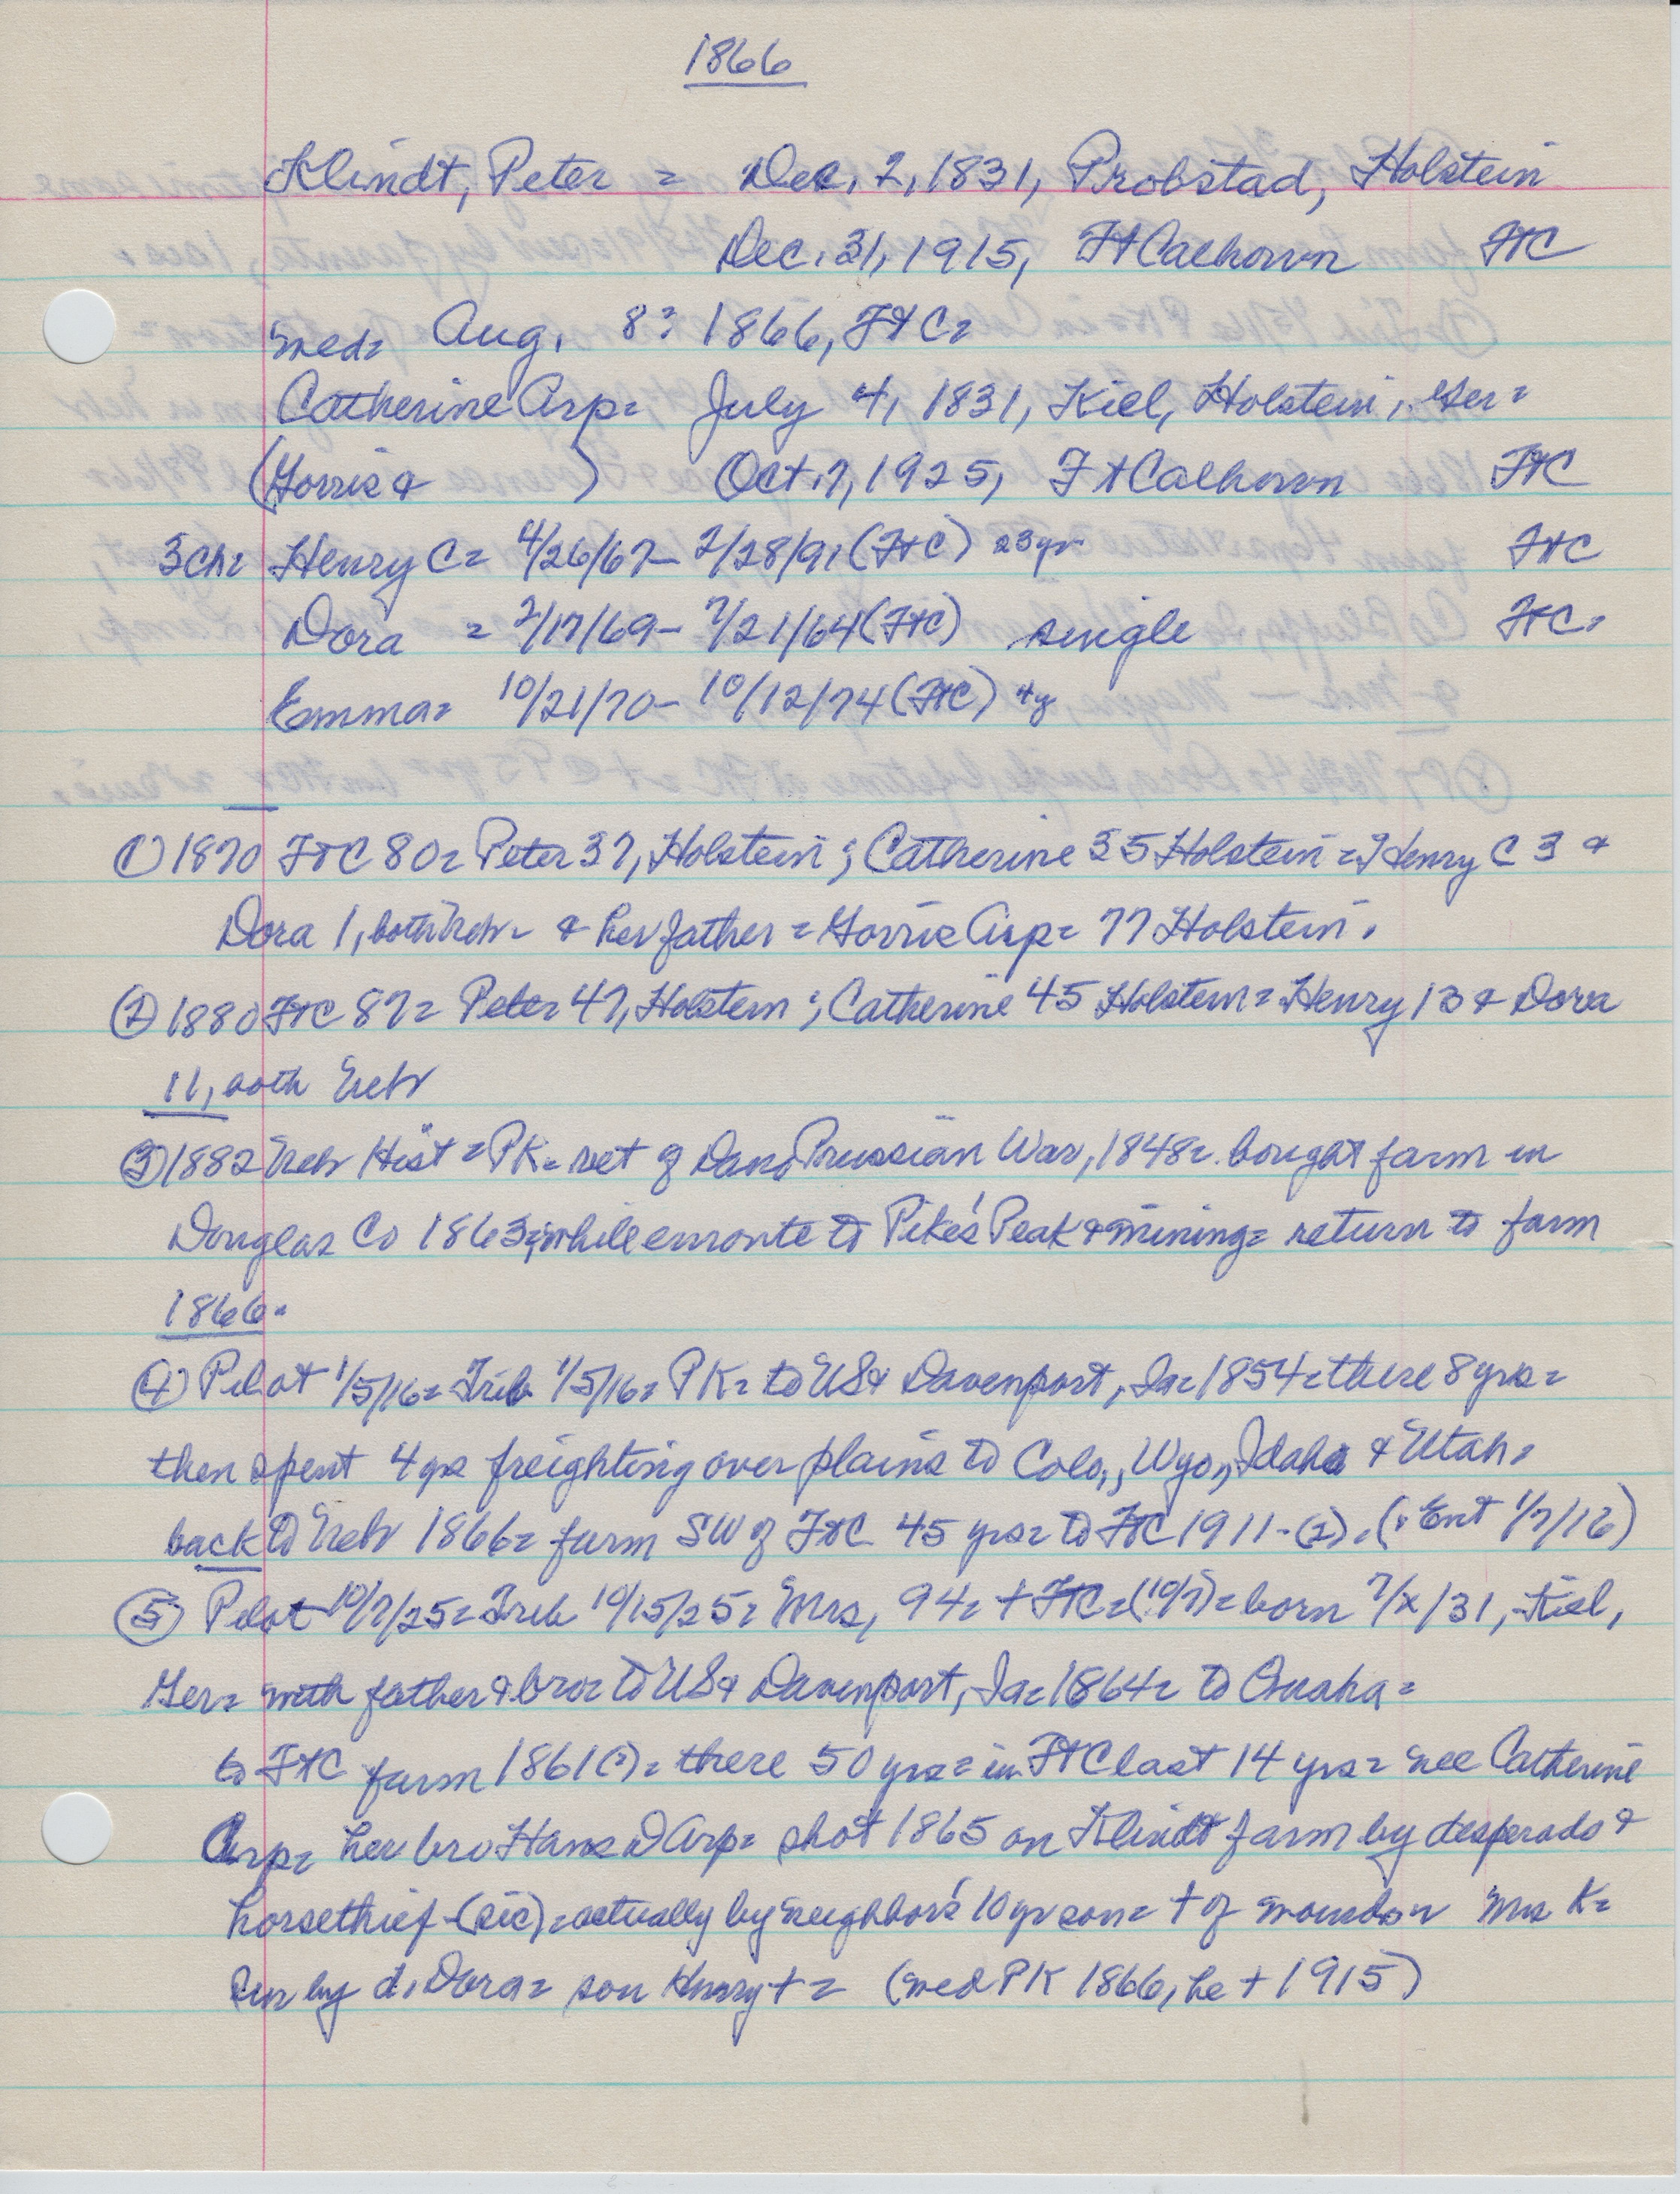 1866
Klindt, Peter = Dec. 2, 1831, Probstad, Holstein
Dec. 31, 1915, FtCalhoun FtC
med= Aug. 8? 1866, FtC=
Catherine Arp= July 4, 1831, Kiel, Holstein, Ger=
(Gorris & ) Oct. 7, 1925, FtCalhoun FtC
3ch= Henry C= 4/26/67- 2/28/91 (FtC) 23yr FtC
Dora = 2/17/69- 7/21/64 (FtC) single FtC.
Emma= 10/21/70- 10/12/74 (FtC) 4y
① 1870 FtC 80= Peter 37, Holstein; Catherine 35 Holstein = Henry C 3 &
Dora 1, both Neb= & her father = Gorris Arp= 77 Holstein.
② 1880 FtC 87= Peter 47, Holstein; Catherine 45 Holstein= Henry 13 & Dora
11, both Neb
③ 1882 Neb Hist = PK= vet of Dano Prussian War, 1848= bought farm in
Douglas Co 1863, while enroute to Pike's Peak & mining= return to farm
1866.
④ Pilot 1/5/16= Trib 1/5/16= PK= to US& Davenport, Ia= 1854= there 8 yrs=
then spent 4 yrs freighting over plains to Colo., Wyo., Idaho & Utah=
back to Neb 1866= farm SW of FtC 45 yrs= to FtC 1911-(2). (: Ent 1/7/16)
⑤ Pilot 10/7/25= Trib 10/15/25= Mrs, 94= + FtC= (10/7)= born 7/x/31, Kiel,
Ger= with father & bro= to US& Davenport, Ia= 1864= to Omaha=
to FtC farm 1861(?)= there 50 yrs= in FtC last 14 yrs= nee Catherine
Arp= her bro Hans D Arp= shot 1865 on Klindt farm by desperado &
horsethief-(sic)=actually by neighbor's 10 yr son= + of wounds= Mrs K=
sur by d. Dora= son Henry += (med PK 1866, he + 1915)